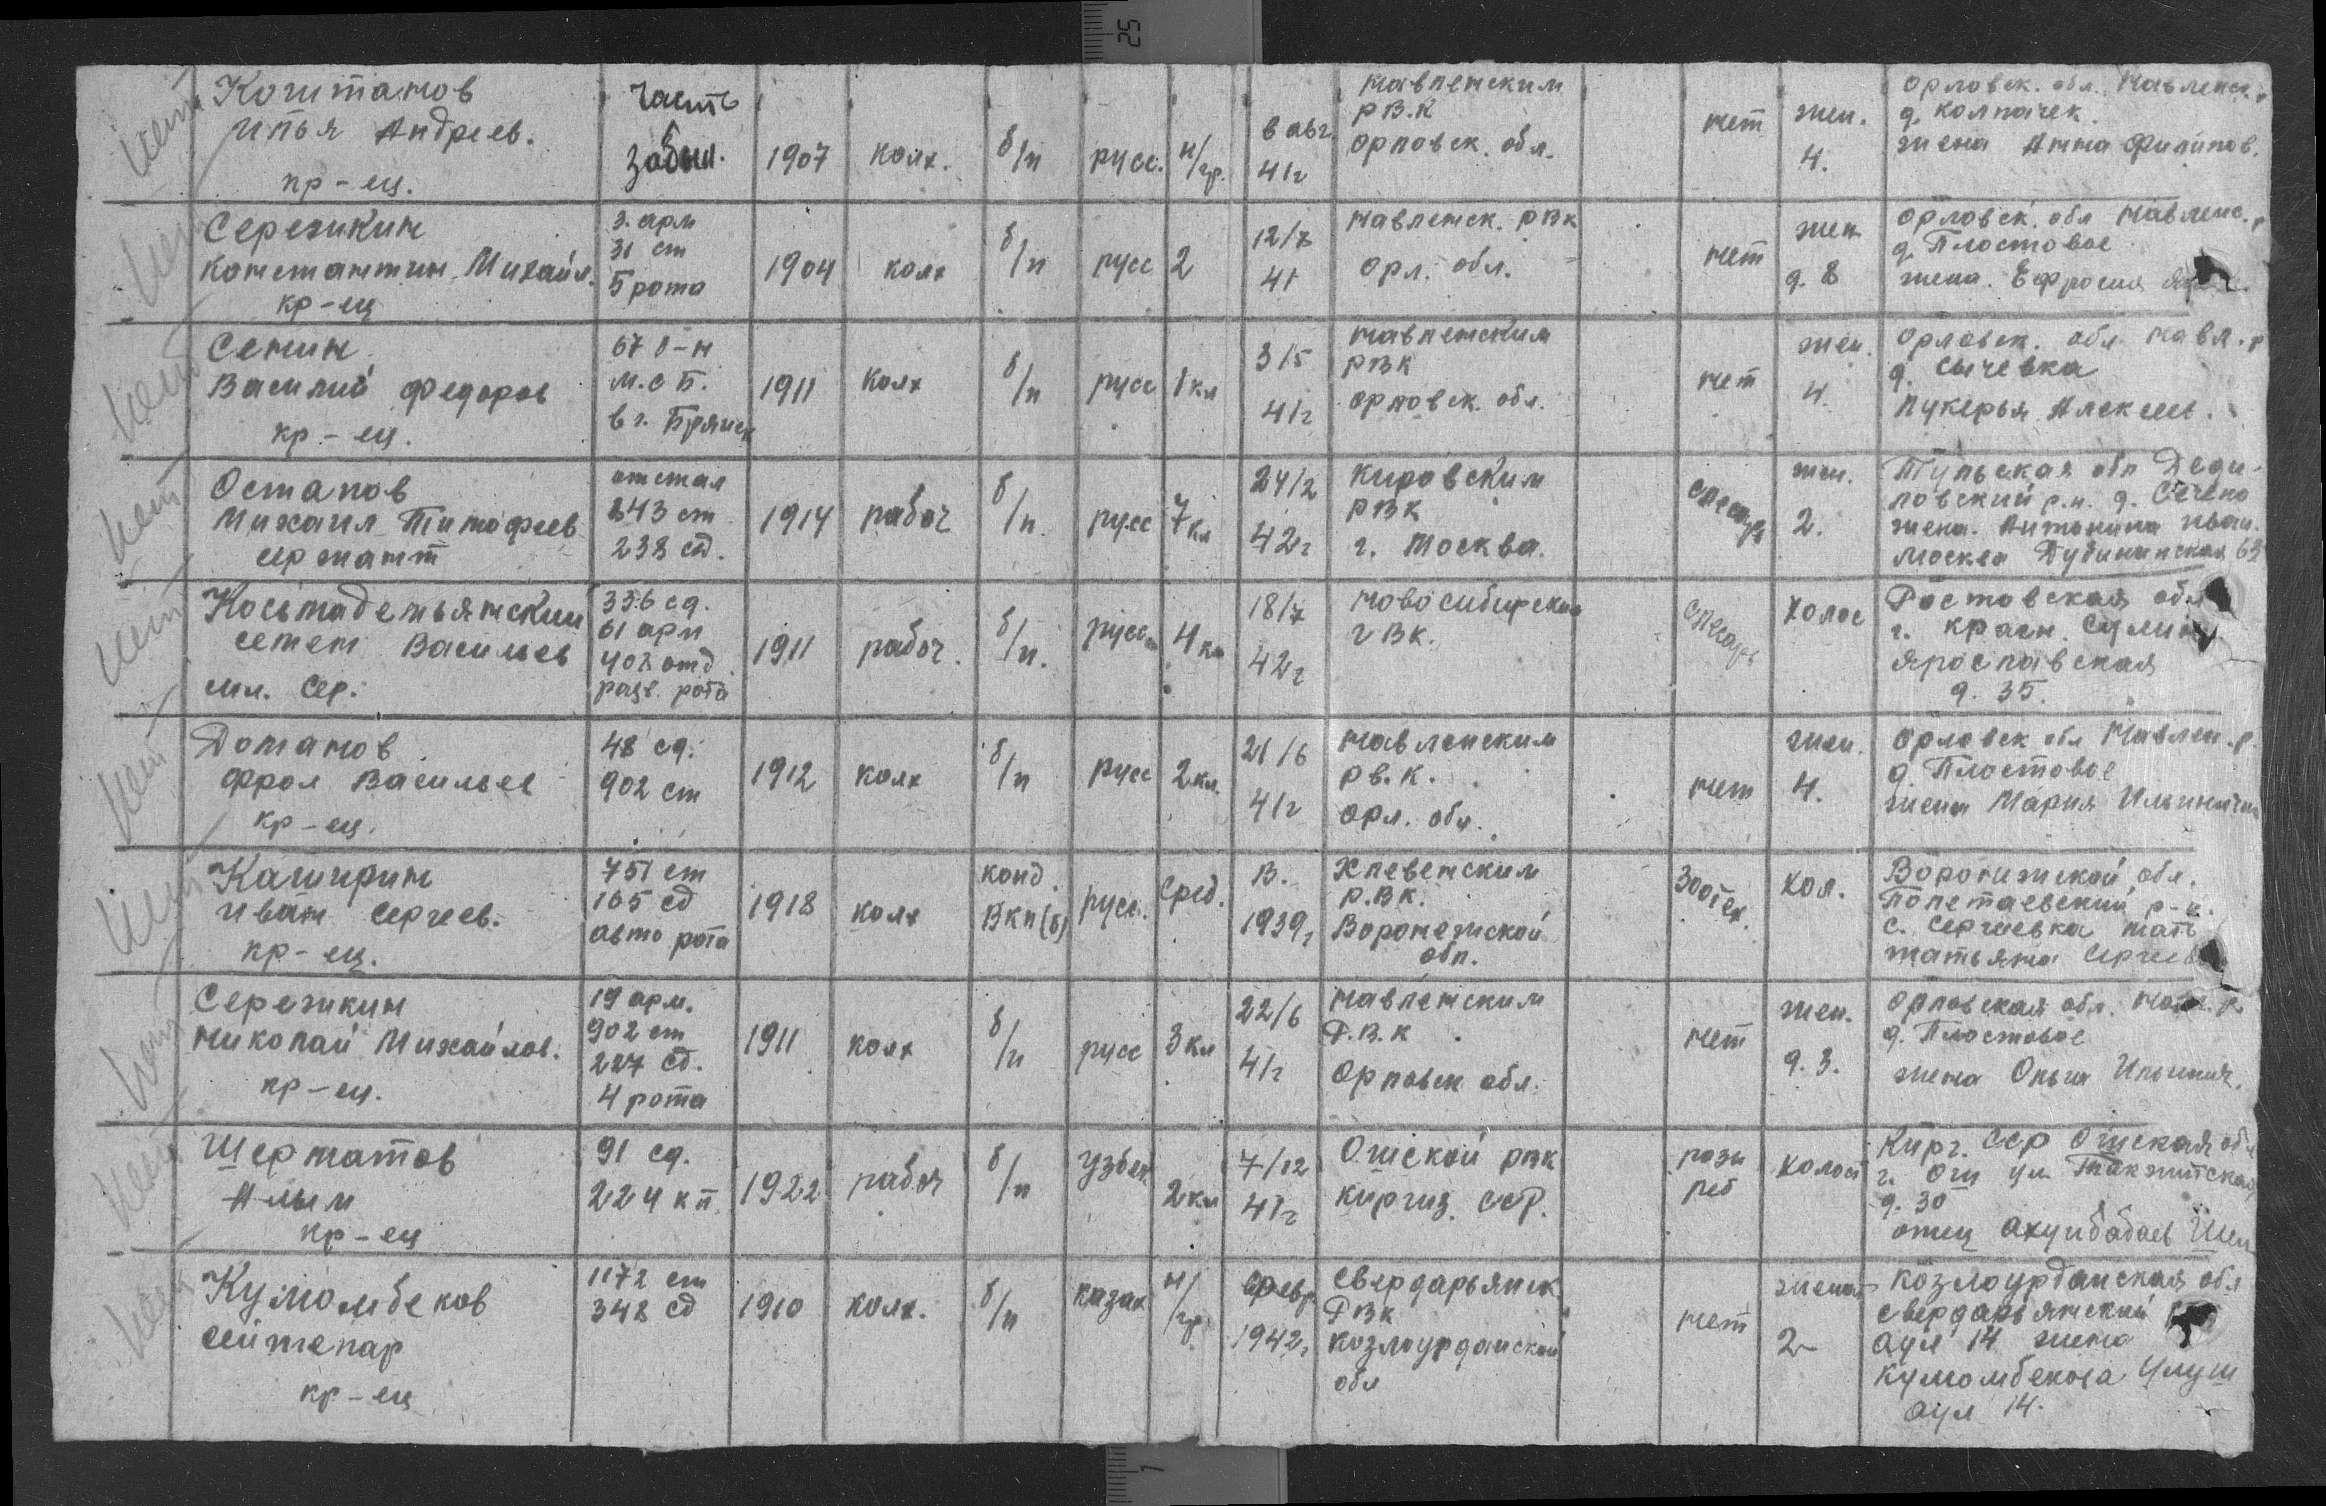 25
нет
Коштанов
Илья Андреев.
кр-ец.
Часть
забыл.
1907
колх.
б/п
русс.
н/гр.
в авг.
41г
Навленским
РВ.К
Орловск. обл.
нет
жен.
4.
Орловск. обл. Навленск. р
д. Колпачек.
жена Анна Филипов.
нет
Сережикин
Константин Михайл.
кр-ец
3. арм
31 сп
5 рота
1904
колх
б/п
русс
2
12/7
41
Навленск. РВК
Орл. обл.
нет
жен
д. 8
Орловск. обл Навленс. р
д. Плостовое
жена. Ефросия
нет
Семин
Василий Федоров
кр-ец.
67 б-н
М.С Б.
в г. Брянск
1911
Колх
б/п
русс
1 кл
3/5
41г
Навленским
РВК
Орловск. обл.
нет
жен.
4.
Орловск. обл. Навл. р
д. Сычевка
Лукерья Алексеев.
нет
Остапов
Михаил Тимофеев
сержант
отстал
843 сп
238 сд.
1914
рабоч
б/п.
русс
7 кл
24/2
42г
Кировским
РВК
г. Москва.
слесарь
жен.
2.
Тульская обл Деди-
ловский р.н. д.
жена. Антонина Иван.
Москва Дубининская 63
нет
Косьмадемьянский
Семен Васильев
мл. сер.
336 сд.
61 арм
402 отд
разв. рота
1911
рабоч.
б/п.
русс
4 кл
18/7
42г
Новосибирским
ГВК.
слесарь
холос
Ростовская обл
г. Красн. Сулин
Ярославская
д. 35.
нет
Доманов
Фрол Васильев
кр-ец.
48 сд.
902 сп
1912
колх
б/п
русс
2 кл.
21/6
41г
Навленским
РВ.К.
Орл. обл.
нет
жен.
4.
Орловск обл Навлен. р.
д. Плостовое
жена Мария Ильинична
нет
Каширин
Иван Сергеев.
кр-ец.
751 сп
165 сд
авто рота
1918
колх
конд.
ВКП(б)
русс.
Сред.
В.
1939г
Хлевенским
Р.ВК.
Воронежской
обл.
Зоотех.
хол.
Воронежской обл.
Полетаевский р-н.
с. Сергеевка мать
Татьяна Сергеев
нет
Сережикин
Николай Михайлов.
кр-ец.
19 арм.
902 сп
227 сд.
4 рота
1911
колх
б/п
русс
3 кл
22/6
41г
Навленским
Р.В.К
Орловск обл.
нет
жен.
д. 3.
Орловская обл. Навл. р.
д. Плостовое
жена Ольга Ильинич.
нет
Шерматов
Алым
кр-ец
91 сд.
224 кп
1922
рабоч
б/п
узбек.
2 кл
7/12
41г
Ошской РВК
Киргиз. ССР.
холост
Кирг. ССР Ошская обл
г. Ош ул.
д. 30
отец Ахунбабаев Шер
нет
Кумомбеков
Сейтепар
кр-ец
1172 сп
348 сд
1910
колх.
б/п
казах
н/гр.
февр
1942г
Свердарьянск
РВК
Козлоурданской
обл
нет
женат
2
Козлоурданская обл
Свердарьянский
аул 14 жена
Кумомбекова Улуш
аул 14.
1